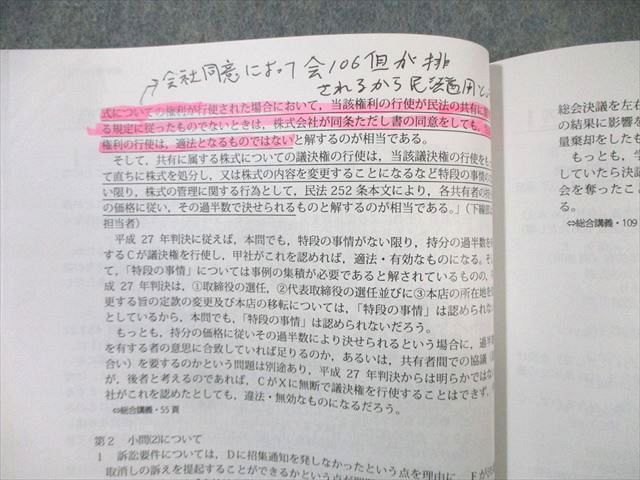 会社同意によって会106但が排
されるから民法適用と
式についての権利が行使された場合において，当該権利の行使が民法の共有に
る規定に従ったものでないときは，株式会社が同条ただし書の同意をしても，
権利の行使は，適法となるものではないと解するのが相当である。
そして，共有に属する株式についての議決権の行使は，当該議決権の行使をも
て直ちに株式を処分し，又は株式の内容を変更することになるなど特段の事情の
い限り，株式の管理に関する行為として，民法 252 条本文により，各共有者の持
の価格に従い，その過半数で決せられるものと解するのが相当である。」（下線部
担当者）
平成 27 年判決に従えば，本問でも，特段の事情がない限り，持分の過半数を
するＣが議決権を行使し，甲社がこれを認めれば，適法・有効なものになる。そ
て，「特段の事情」については事例の集積が必要であると解されているものの，平
成 27 年判決は，①取締役の選任，②代表取締役の選任並びに③本店の所在地を
更する旨の定款の変更及び本店の移転については，「特段の事情」は認められな
としているから，本問でも，「特段の事情」は認められないだろう。
もっとも，持分の価格に従いその過半数により決せられるという場合に，過半
を有する者の意思に合致していれば足りるのか，あるいは，共有者間での協議（
合い）を要するのかという問題は別途あり，平成 27 年判決からは明らかではな
が，後者と考えるのであれば，ＣがＸに無断で議決権を行使することはできず，
社がこれを認めたとしても，違法・無効なものになるだろう。
⇔総合講義・55 頁
第２　小問(2)について
１　訴訟要件については，Ｄに招集通知を発しなかったという点を理由に，Ｅが
取消しの訴えを提起することができるかという点が問
総会決議を左右
の結果に影響を
量棄却をしたも
もっとも，学
していたら決議
会を奪ったこ
る。
⇔総合講義・109